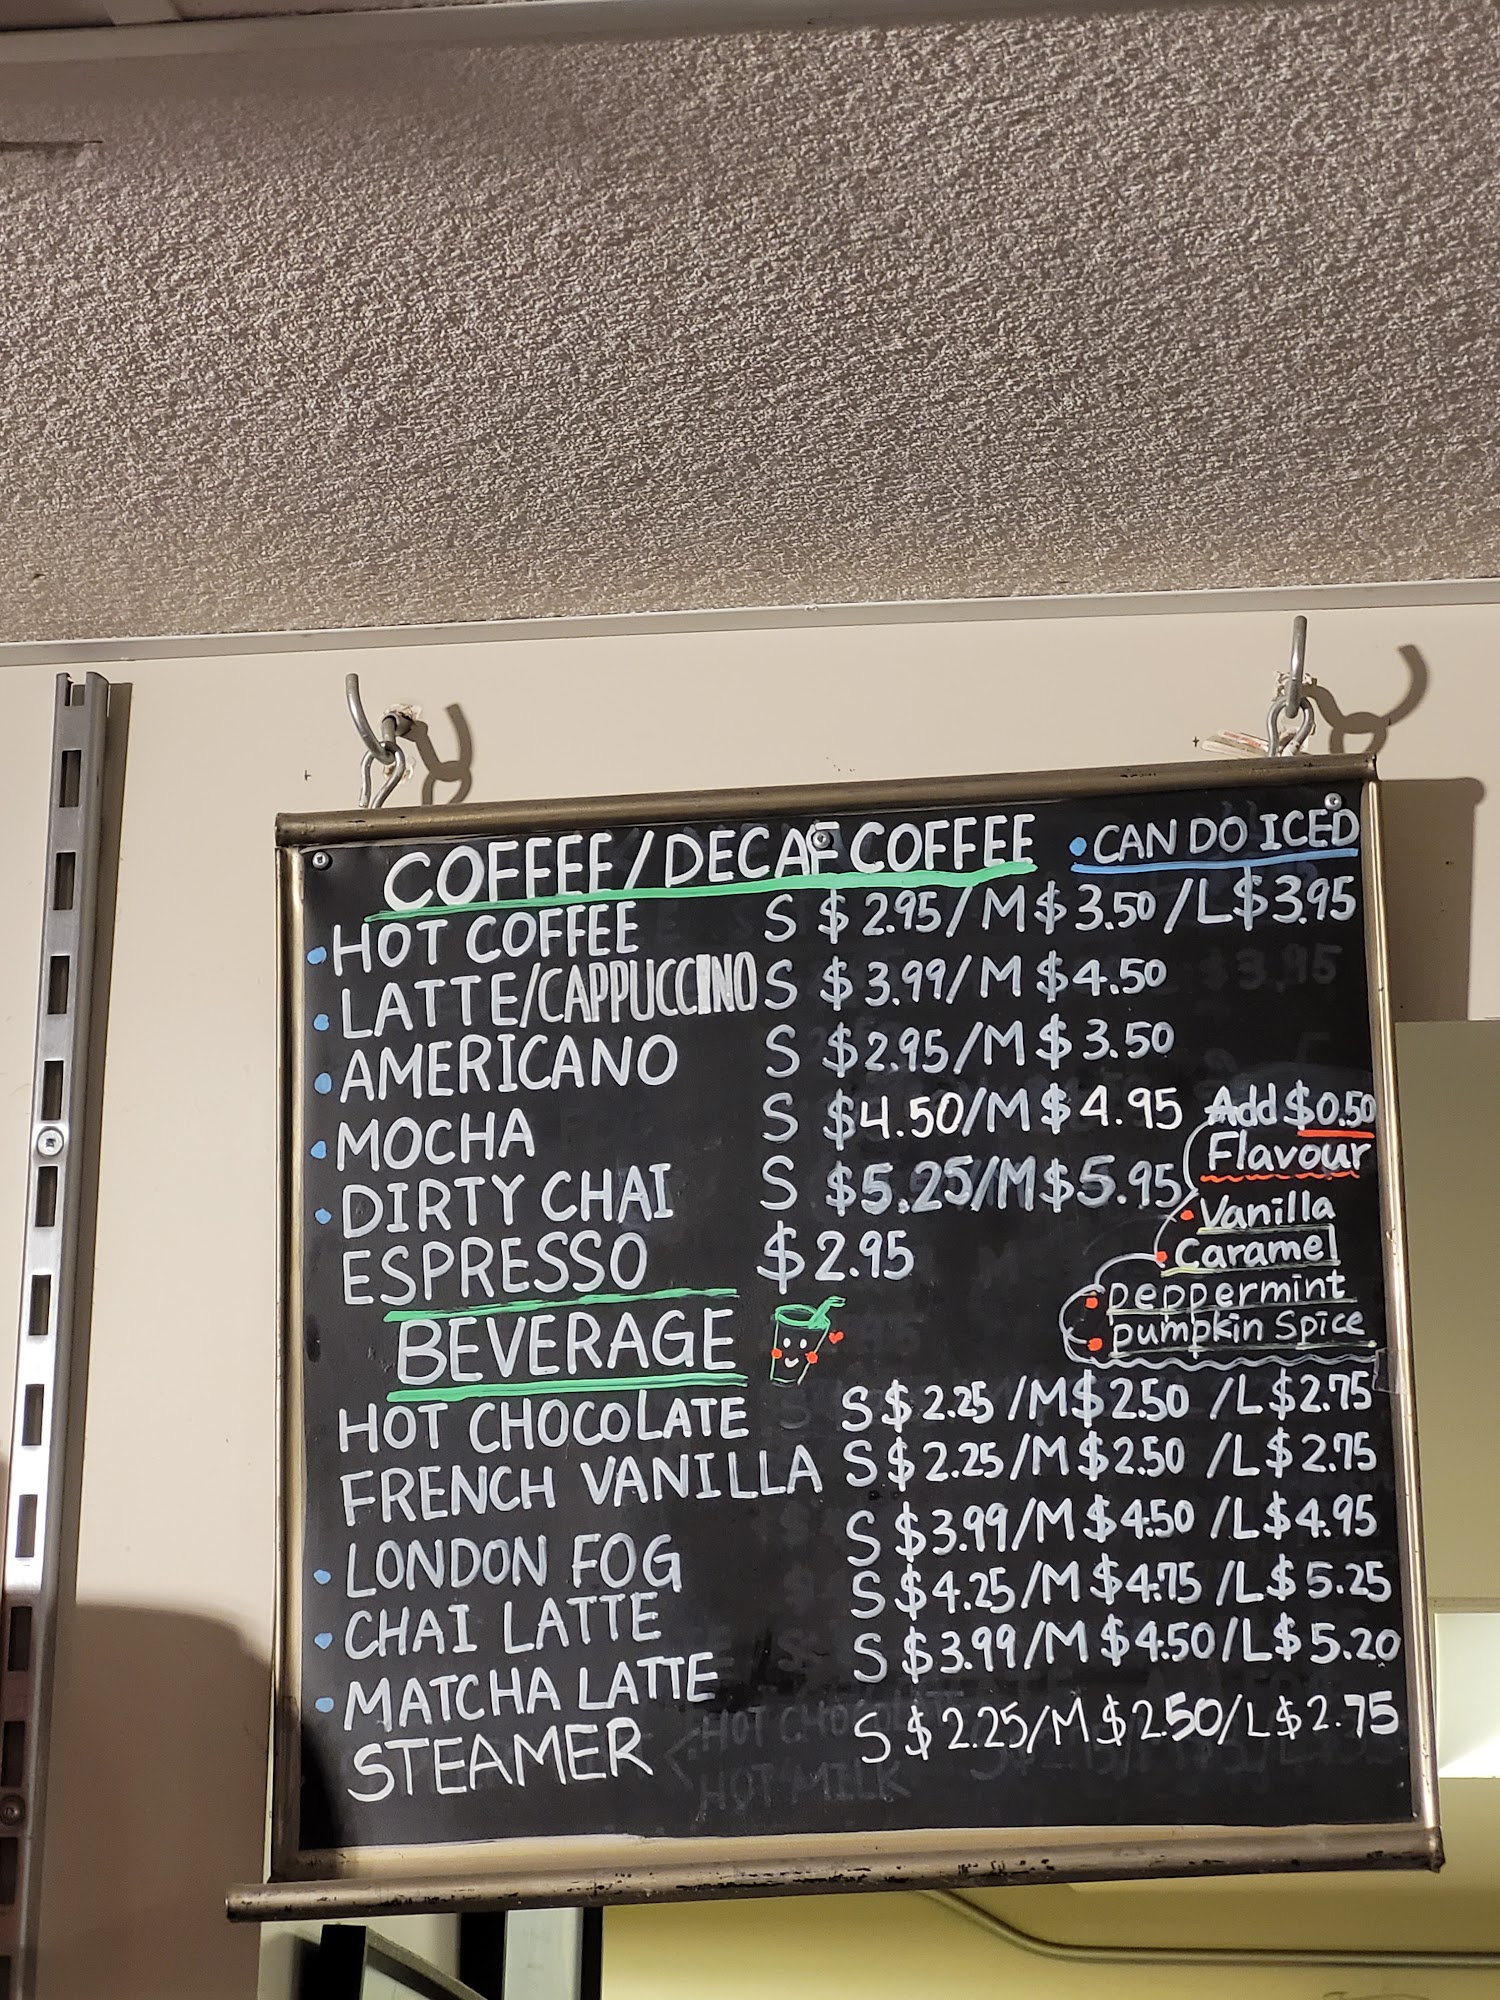 COFFEE/DECAF COFFEE •CAN DO ICED
•HOT COFFEE S $2.95/M $3.50/L $3.95
•LATTE/CAPPUCCINO S $3.99/M $4.50
•AMERICANO S $2.95/M $3.50
•MOCHA S $4.50/M $4.95
•DIRTY CHAI S $5.25/M $5.95
ESPRESSO $2.95
Add $0.50
Flavour
•Vanilla
•Caramel
•peppermint
•pumpkin Spice
BEVERAGE
HOT CHOCOLATE S $2.25/M $2.50/L $2.75
FRENCH VANILLA S $2.25/M $2.50/L $2.75
•LONDON FOG S $3.99/M $4.50/L $4.95
•CHAI LATTE S $4.25/M $4.75/L $5.25
•MATCHA LATTE S $3.99/M $4.50/L $5.20
STEAMER S $2.25/M $2.50/L $2.75
HOT CHOCOLATE
HOT MILK